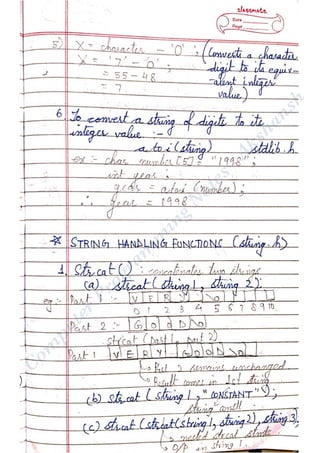 classmate
Date
Page
5) X = character - '0' ; (Converts a character
X = '7' - '0' ; digit to its equiv-
= 55 - 48 alent integer
= 7 value)
6. To convert a string of digits to its
integer value :-
a to i (string) stdlib.h
ex :- char number [5] = "1998" ;
int year ;
year = atoi (number) ;
∴ year = 1998
☆ STRING HANDLING FUNCTIONS (string.h)
1. Strcat () : concatenates two strings
(a) strcat (string 1, string 2) ;
eg :- Part 1 :- V E R Y \0
0 1 2 3 4 5 6 7 8 9 10
Part 2 :- G O O D \0
strcat (part 1, part 2)
Part 1 V E R Y G O O D \0
↳ Part 2 remains unchanged
↳ Result comes in 1st string
(b) strcat (string 1, "CONSTANT") ;
string const
(c) strcat (strcat (string 1, string 2), string 3) ;
↳ nested strcat
↳ O/P in string 1.